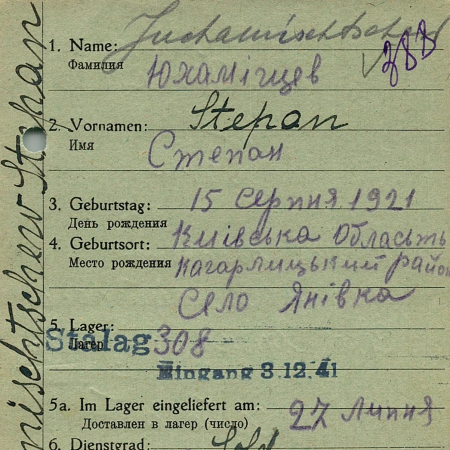 1. Name: Juchamischtschew
Фамилия Юхамігцев
38B
2. Vornamen: Stepan
Имя Степан
3. Geburtstag: 15 Серпня 1921
День рождения
4. Geburtsort: Київська Обласьть
Место рождения Кагарлицький район
Село Янівка
5. Lager: Stalag 308
Лагерь
Eingang 3.12.41
5a. Im Lager eingeliefert am: 27 Липня
Доставлен в лагерь (число)
6. Dienstgrad: Sold
mischtschew Stephan